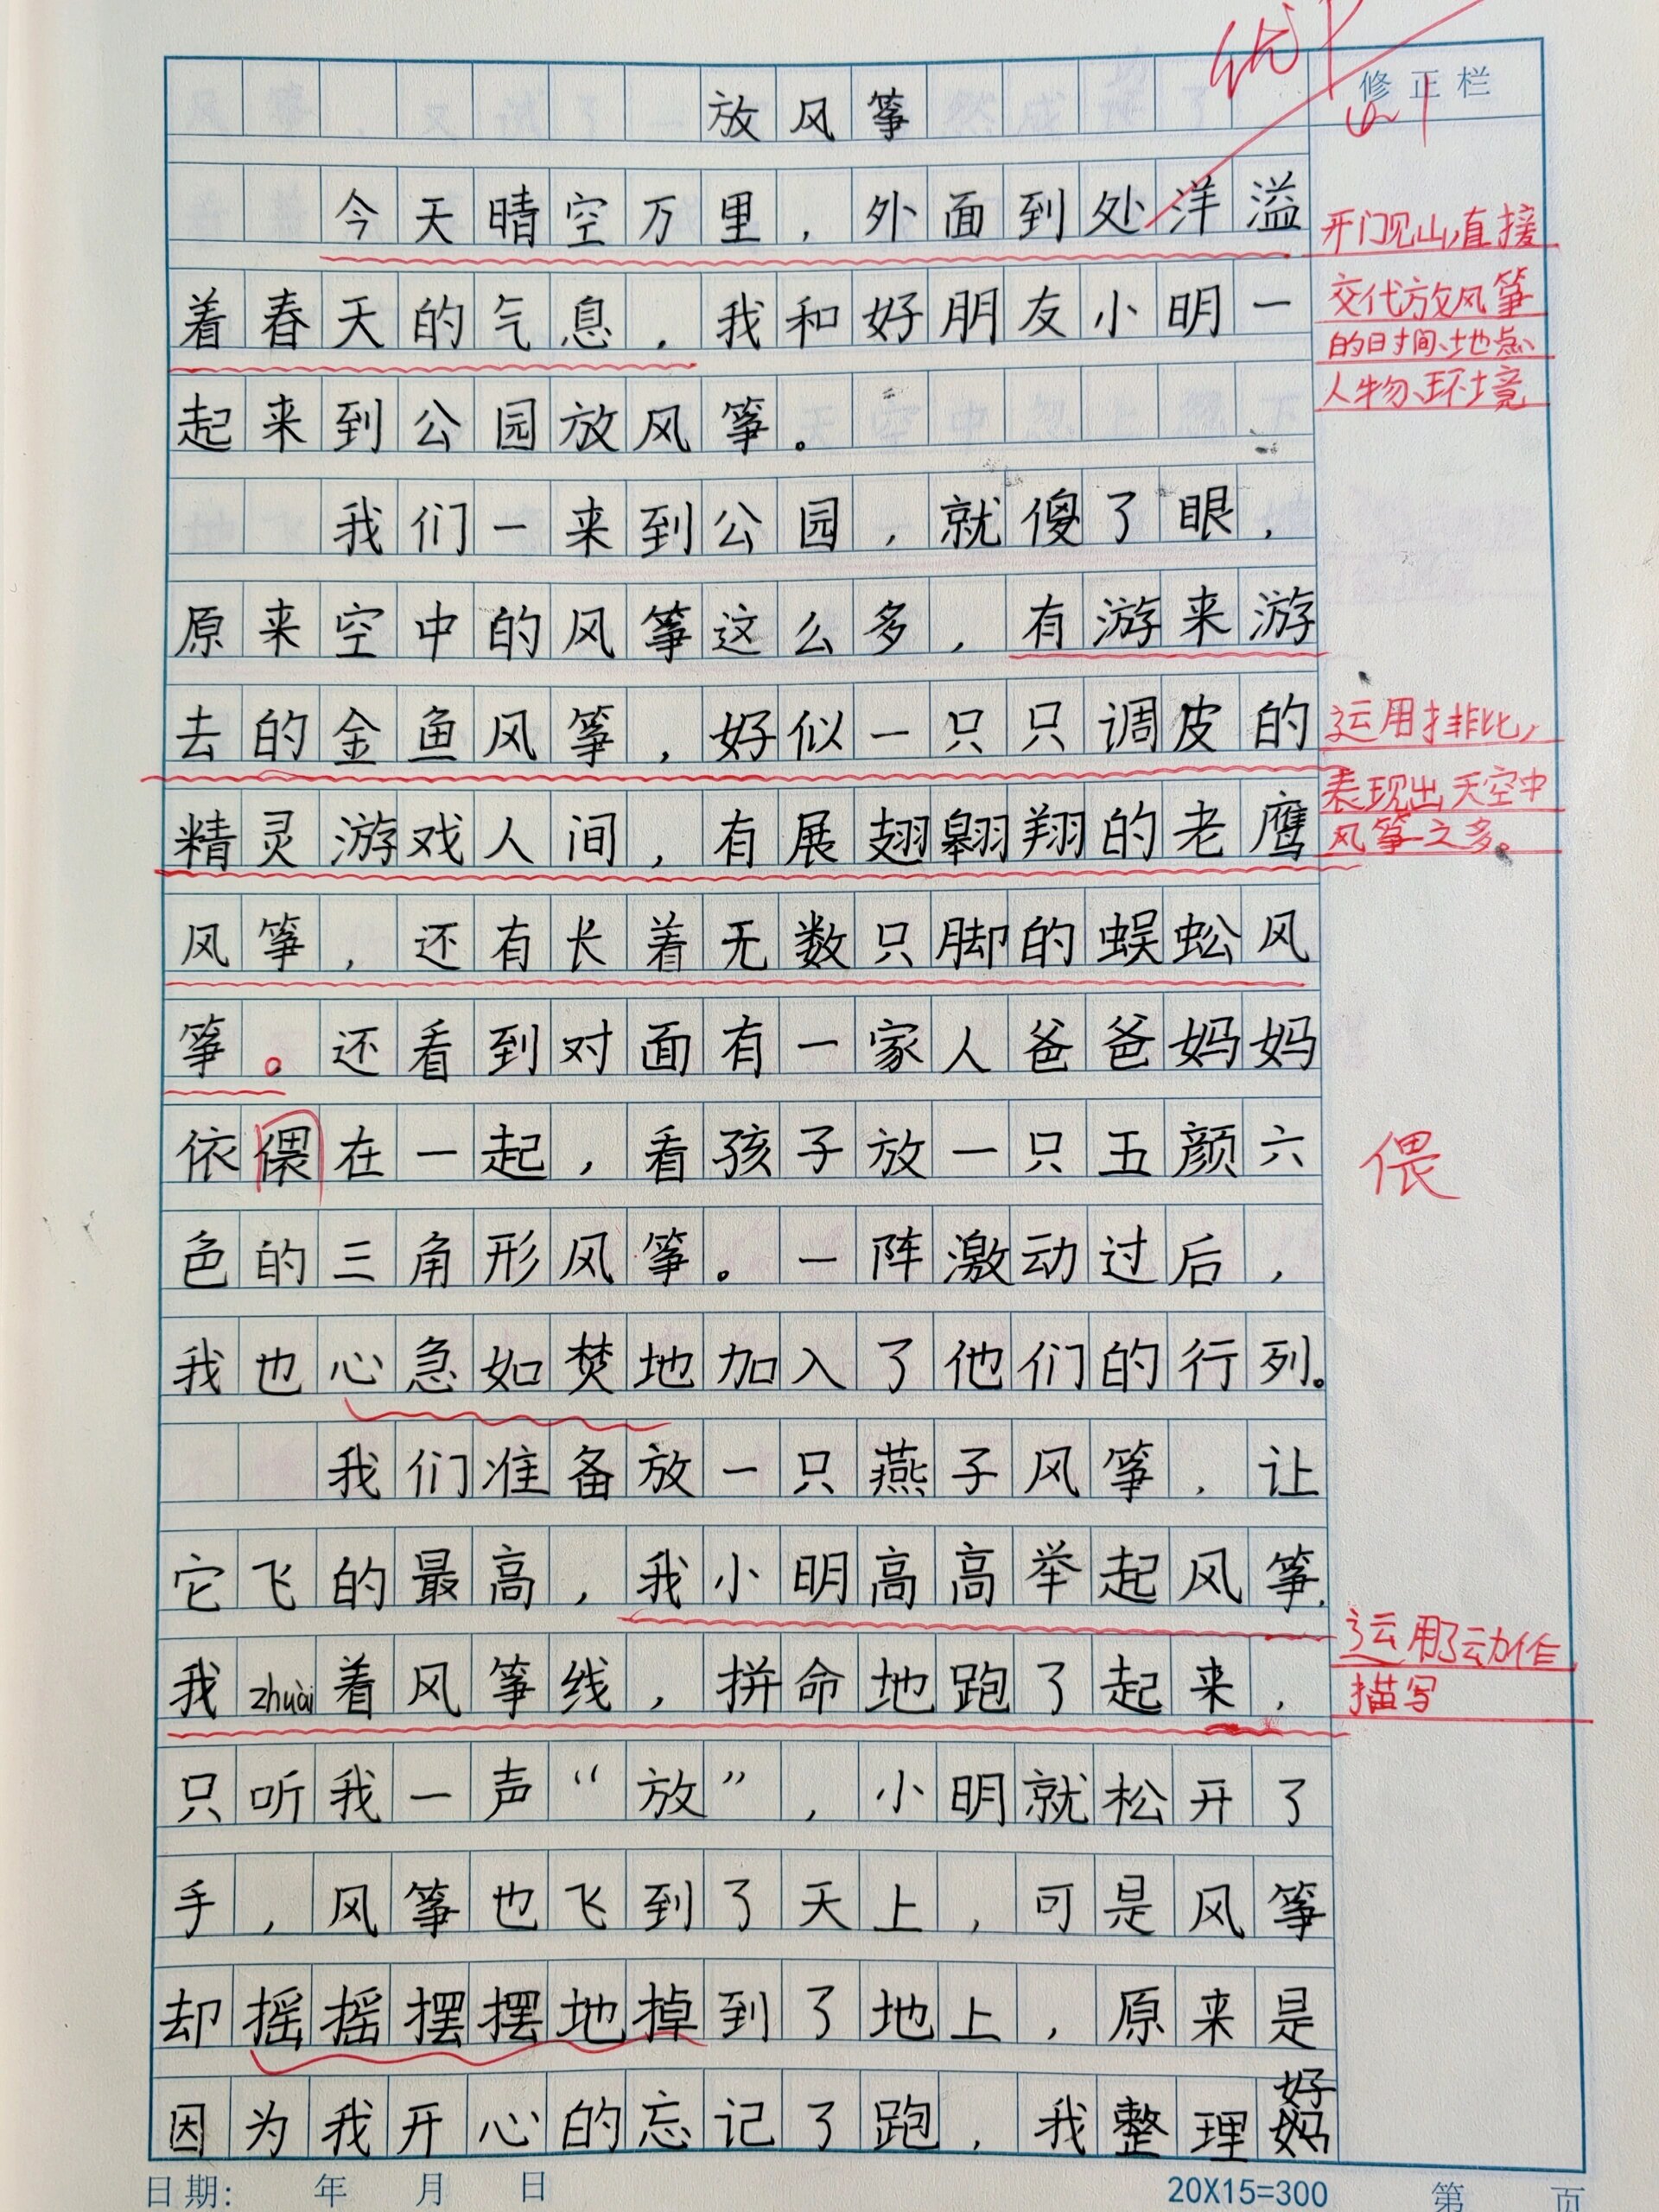 优+
修正栏
放风筝
今天晴空万里，外面到处洋溢
开门见山,直接
着春天的气息，我和好朋友小明一
交代放风筝
的时间、地点、
起来到公园放风筝。
人物、环境
我们一来到公园，就傻了眼，
原来空中的风筝这么多，有游来游
去的金鱼风筝，好似一只只调皮的
运用排比,
精灵游戏人间，有展翅翱翔的老鹰
表现出天空中
风筝之多。
风筝，还有长着无数只脚的蜈蚣风
筝。还看到对面有一家人爸爸妈妈
依偎在一起，看孩子放一只五颜六
偎
色的三角形风筝。一阵激动过后，
我也心急如焚地加入了他们的行列。
我们准备放一只燕子风筝，让
它飞的最高，我小明高高举起风筝，
运用了动作
我zhuài着风筝线，拼命地跑了起来，
描写
只听我一声“放”，小明就松开了
手，风筝也飞到了天上，可是风筝
却摇摇摆摆地掉到了地上，原来是
因为我开心的忘记了跑，我整理好
日期: 年 月 日 20X15=300 第 页